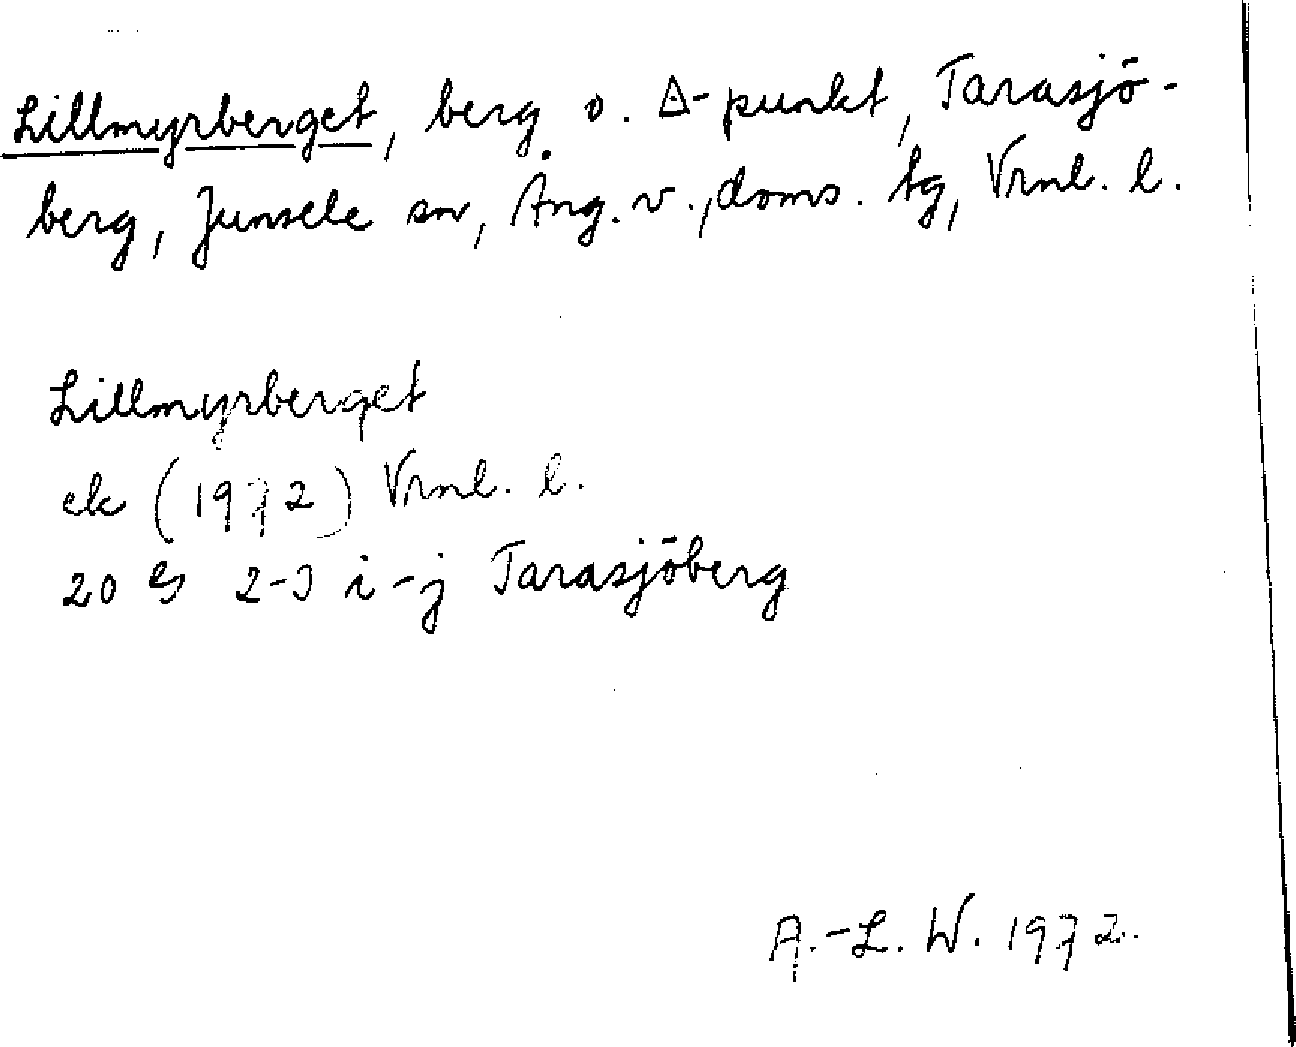 Lillmyrberget, berg o. Δ-punkt, Tarasjö-
berg, Junsele sn, Ång. v., doms. tg, Vrnl. l.
Lillmyrberget
ek (1972) Vrnl. l.
20 G 2-3 i-j Tarasjöberg
A.-L. W. 1972.